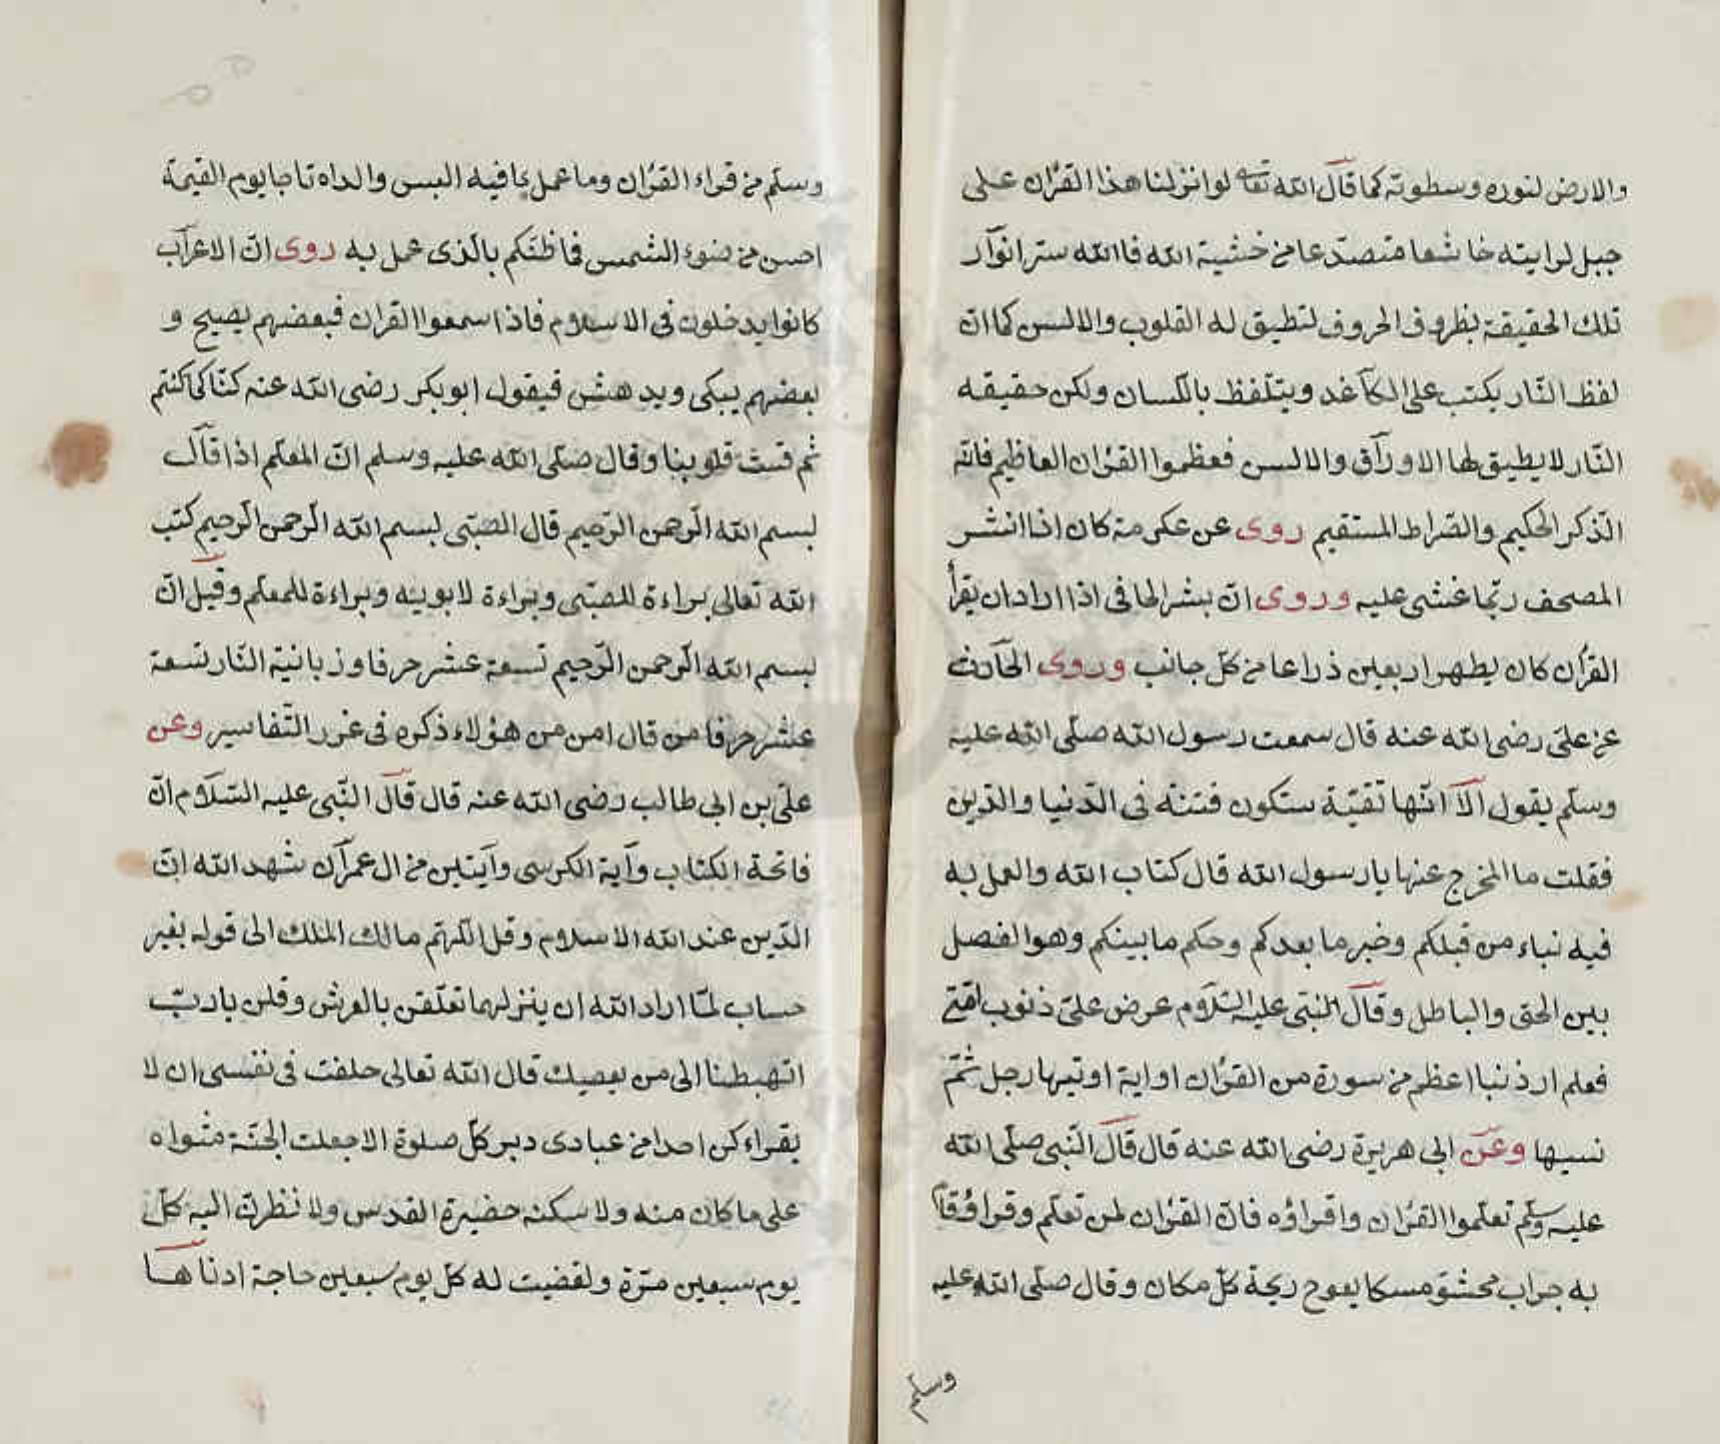 والارض لنوره وسطوته كما قال الله تعا لو انزلنا هذا القرٔان على
جبل لرايته خاشعا متصدّعا من خشية الله فاالله ستر انوار
تلك الحقيقة بظروف الحروف لتطيق له القلوب والالسن كما انّ
لفظ النّار يكتب على الكاغد ويتلّفظ باللّسان ولكن حقيقه
النّار لا يطيق لها الاوراق والالسن فعظموا القرٔان العاظيم فانّه
الذّكر الحكيم والصّراط المستقيم روى عن عكرمة كان اذا انشر
المصحف ربّما غشى عليه وروى انّ بشر الحافى اذا اراد ان يقرأ
القرأن كان يطهر اربعين ذراعا من كلّ جانب وروى الحارث
عن علىّ رضى الله عنه قال سمعت رسول الله صلّى الله عليه
وسلّم يقول الا انّها تقيّة ستكون فتنة فى الدّنيا والدّين
فقلت ما المخرج عنها يا رسول الله قال كتاب الله والعمل به
فيه نباء من قبلكم وخبر ما بعدكم وحكم ما بينكم وهو الفصل
بين الحق والباطل وقال النبّى عليه السّلام عرض علىّ ذنوب امّتى
فعلم ار ذنبا اعظم من سورة من القرٔان او اية اوتيها رجل ثمّ
نسيها وعن ابى هريرة رضى الله عنه قال قال النّبى صلّى الله
عليه وسلّم تعلّموا القرٔان واقراؤه فانّ القرٔان لمن تعلّم وقراؤ وقام
به جراب محشوّ مسكا يفوح ريحة كلّ مكان وقال صلّى الله عليه
وسلم
وسلّم من قراء القرٔان وما عمل بما فيه البس والداه تاجا يوم القيمة
احسن من ضوء الشمس فما ظنّكم بالّذى عمل به روى انّ الاعراب
كانوا يدخلون فى الاسلام فاذا سمعوا القران فبعضهم يصيح و
بعضهم يبكى ويدهش فيقول ابو بكر رضى الله عنه كنّا كما كنتم
ثم قست قلوبنا وقال صلّى الله عليه وسلم انّ المعلّم اذا قال
بسم الله الرّحمن الرّحيم قال الصّبّى بسم الله الرّحمن الرّحيم كتب
الله تعالى براءة للصّبّى وبراءة لابوينه وبراءة للمعلّم وقيل انّ
بسم الله الرّحمن الرّحيم تسعة عشر حرفا وزبانية النّار تسعة
عشر حرفا من قال امن من هؤلاء ذكره فى غرر التّفاسير وعن
علىّ بن ابى طالب رضى الله عنه قال قال النّبى عليه السّلام انّ
فاتحة الكتاب وآية الكرسى وآيتين من ال عمران شهد الله انّ
الدّين عند الله الاسلام وقل اللّهمّ مالك الملك الى قوله بغير
حساب لمّا اراد الله ان ينزلهما تعلّقن بالعرش وقلن يا ربّ
اتهبطنا الى من يعصيك قال الله تعالى حلفت فى نفسى ان لا
يقراء كن احدا من عبادى دبر كلّ صلوة الا جعلت الجنّة مثواه
على ما كان منه ولا سكنه حضيرة القدس ولا نظرت اليه كلّ
يوم سبعين مرّة ولقضيت له كلّ يوم سبعين حاجة ادناها